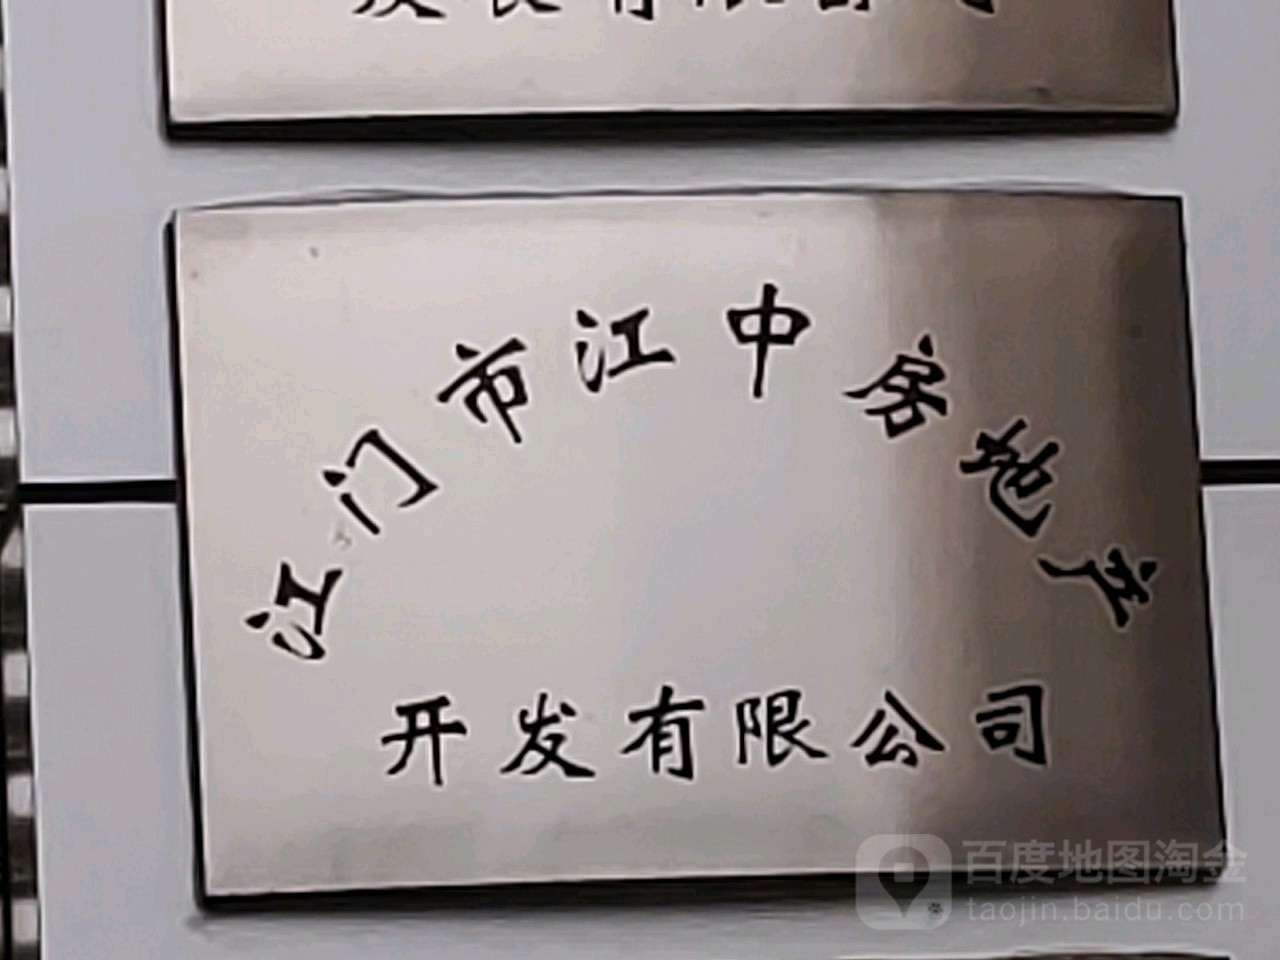 发展有限公司
江门市江中房地产
开发有限公司
百度地图淘金
taojin.baidu.com